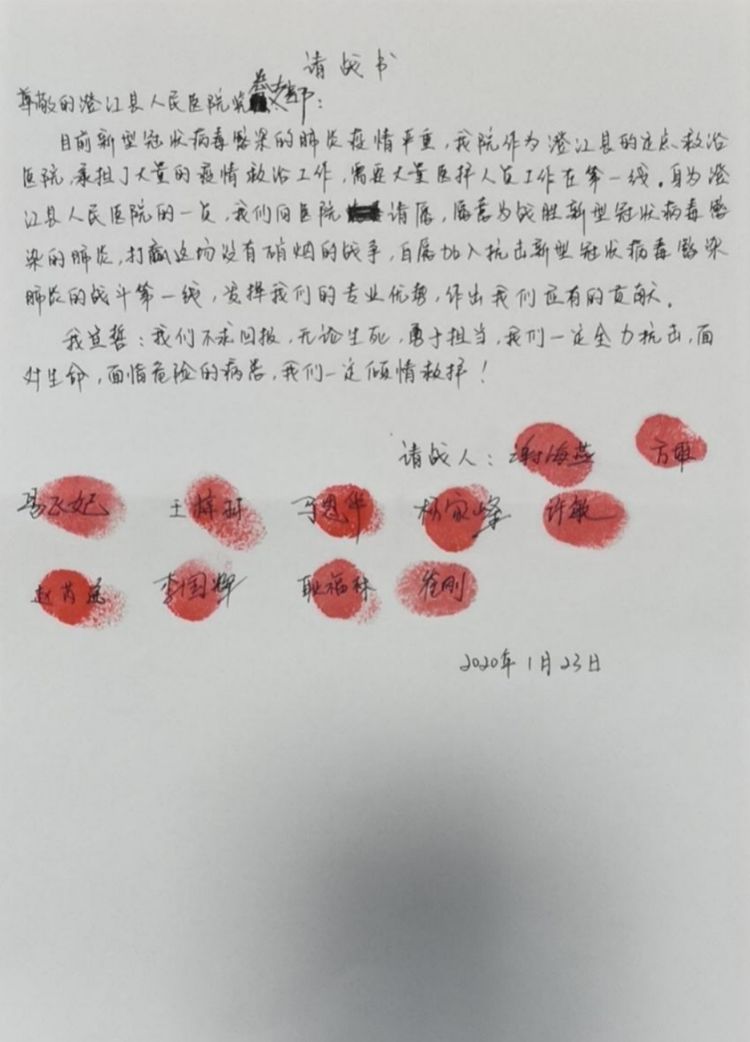 请战书
尊敬的澄江县人民医院党总支部:
目前新型冠状病毒感染的肺炎疫情严重,我院作为澄江县的定点救治
医院,承担了大量的疫情救治工作,需要大量医护人员工作在第一线。身为澄
江县人民医院的一员,我们向医院请愿,愿意为战胜新型冠状病毒感
染的肺炎,打赢这场没有硝烟的战争,自愿加入抗击新型冠状病毒感染
肺炎的战斗第一线,发挥我们的专业优势,作出我们应有的贡献。
我宣誓:我们不求回报,无论生死,勇于担当,我们一定全力抗击,面
对生命,面临危险的病患,我们一定倾情救护!
请战人:谢海燕
王梓珂 马恩华 杨家峰 许敏
李国辉 耿福林 徐刚
2020年1月23日